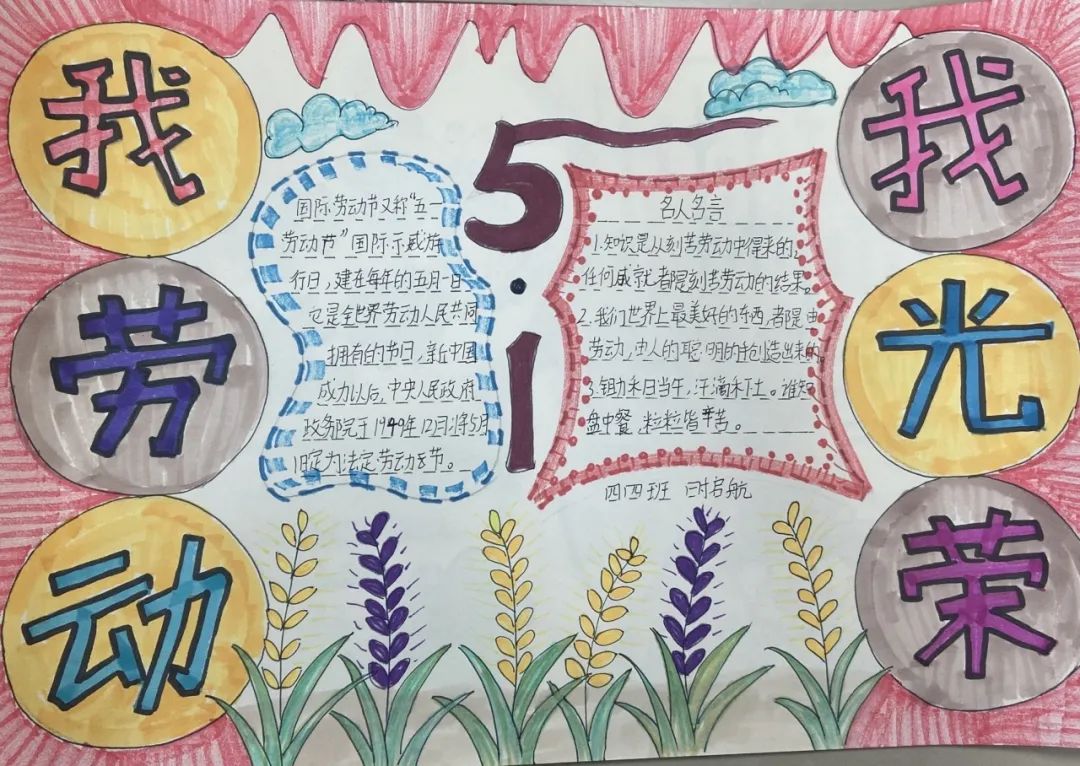 我
劳
动
我
光
荣
5·1
国际劳动节又称“五一
劳动节”国际示威游
行日,建在每年的五月一日
它是全世界劳动人民共同
拥有的节日,新中国
成力以后,中央人民政府
政务院于1949年12月将5月
1日定为法定劳动节。
名人名言
1.知识是从刻苦劳动中得来的,
任何成就都是刻苦劳动的结果。
2.我们世界上最美好的东西,都是由
劳动,由人的聪明的手创造出来的
3.锄禾日当午,汗滴禾下土。谁知
盘中餐,粒粒皆辛苦。
四四班 时启航